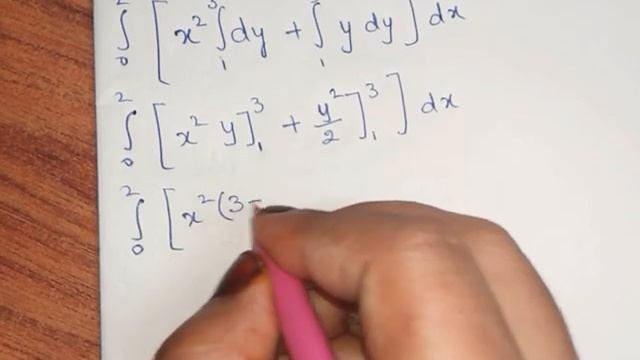 ∫₀² [ x² ∫₁³ dy + ∫₁ y dy ] dx
∫₀² [ x² y]₁³ + y²/2 ]₁³ ] dx
∫₀² [ x² (3 -